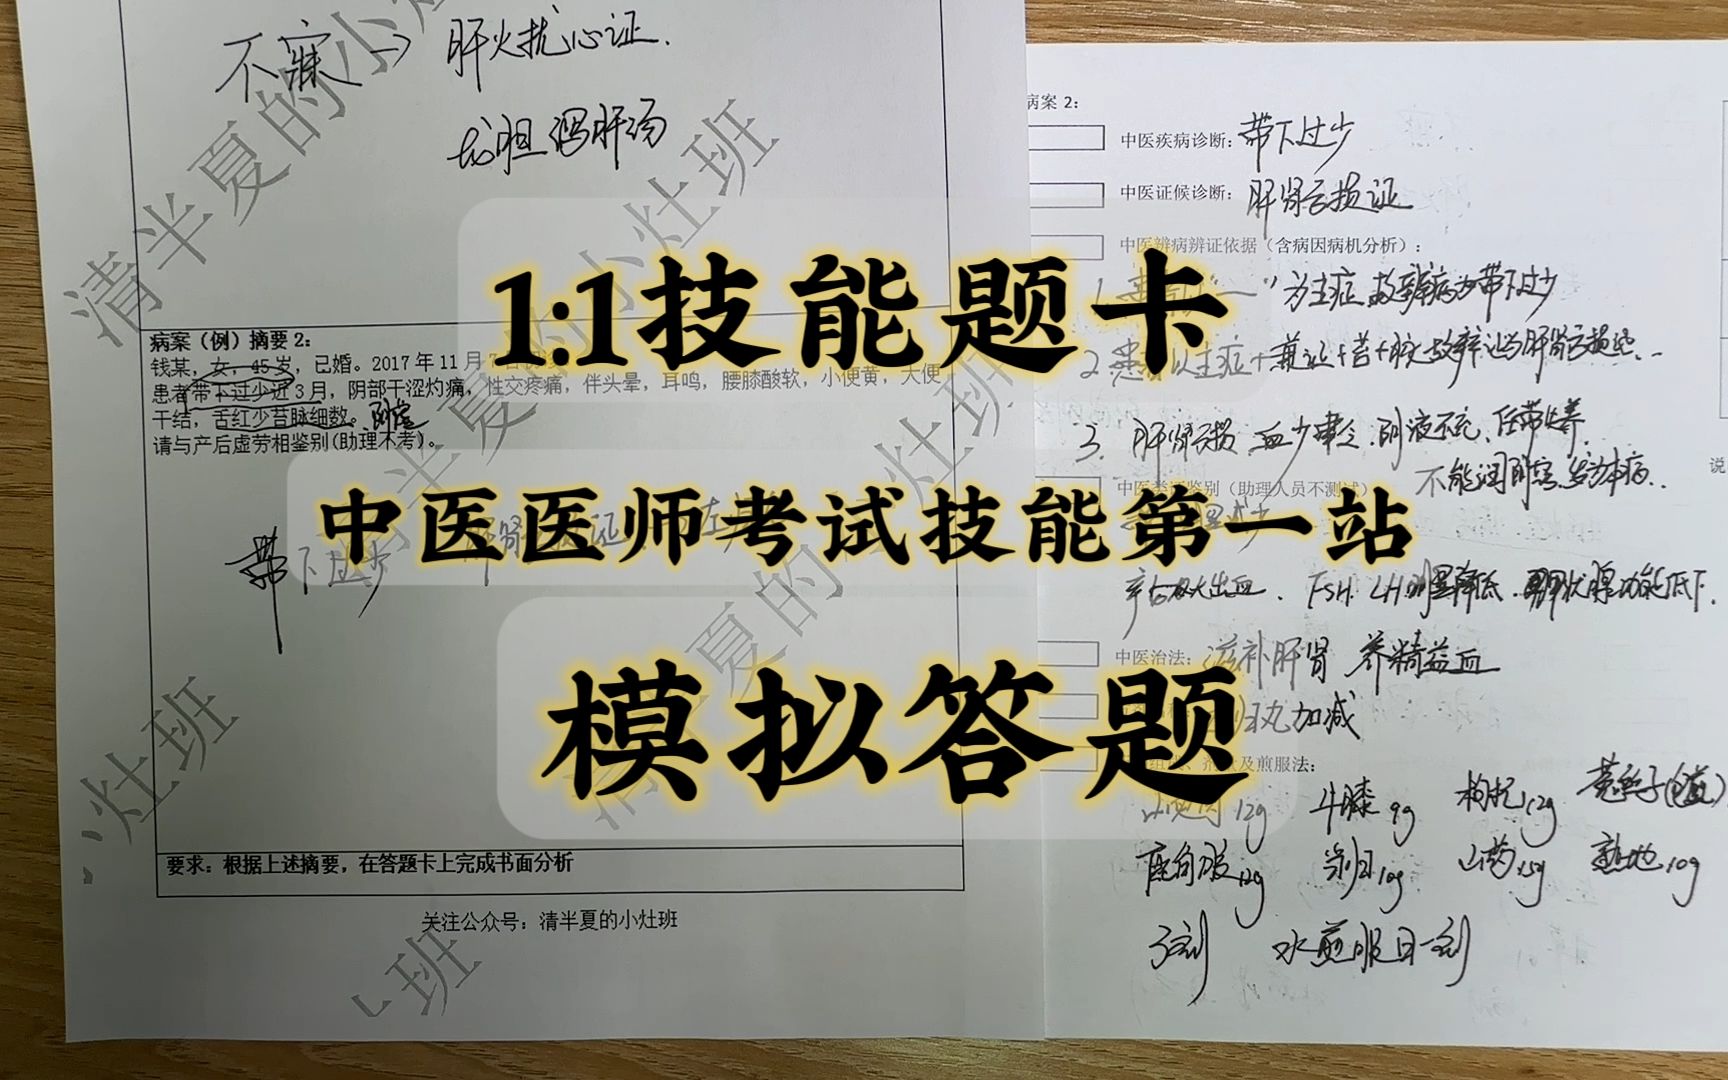 不寐→肝火扰心证.
龙胆泻肝汤
清半夏的小灶班
病案（例）摘要2：
钱某，女，45岁，已婚。2017年11月7日初诊。
患者带下过少近3月，阴部干涩灼痛，性交疼痛，伴头晕，耳鸣，腰膝酸软，小便黄，大便
干结，舌红少苔脉细数。
请与产后虚劳相鉴别(助理不考)。
带下过少
要求：根据上述摘要，在答题卡上完成书面分析
关注公众号：清半夏的小灶班
1:1技能题卡
中医医师考试技能第一站
模拟答题
病案 2：
中医疾病诊断：带下过少
中医证候诊断：肝肾亏损证
中医辨病辨证依据（含病因病机分析）：
"为主症,故辨病为带下过少
2.患者以主症+兼证+舌+脉,故辨证为肝肾亏损证.
3.肝肾亏损.血少津乏.阴液不充、任带失养.
不能润阴窍,发为本病.
中医类证鉴别（助理人员不测试）
产后大出血、FSH、LH明显降低.甲状腺功能低下.
中医治法：滋补肝肾 养精益血
丸加减
剂量及煎服法：
山萸肉12g 牛膝9g 枸杞12g 菟丝子
12g 当归10g 山药15g 熟地10g
3剂 水煎服日一剂